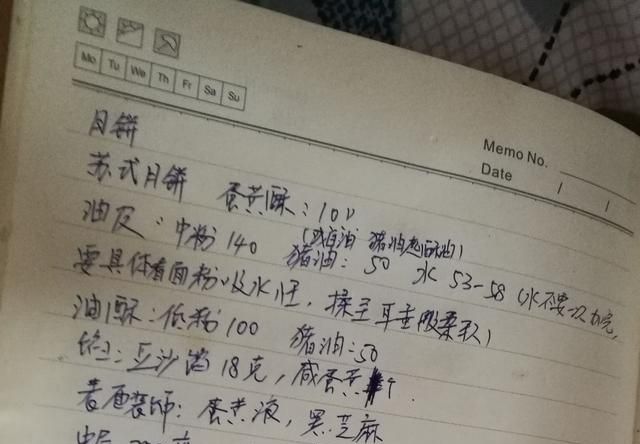 Mo Tu We Th Fr Sa Su
Memo No.
Date / /
月饼
苏式月饼 蛋黄酥:10个
(或白油 猪油起酥油)
油皮:中粉 140 猪油:50 水 53-58 (水不要一次加完,
要具体看面粉吸水性,揉至耳垂般柔软)
油酥:低粉 100 猪油:50
馅:豆沙馅 18克,咸蛋黄
表面装饰:蛋黄液,黑芝麻